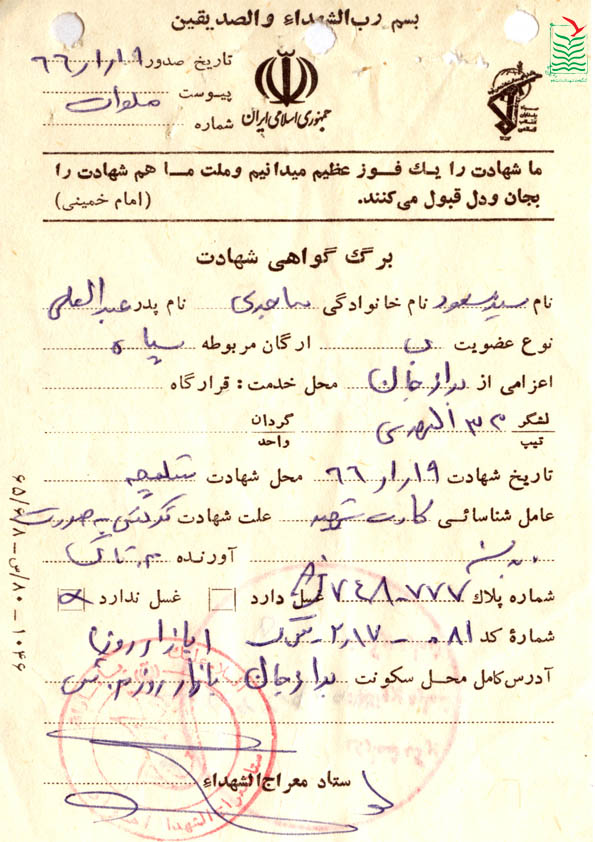 بسم رب الشهداء والصدیقین
تاریخ صدور ۱۹ر۱ر۶۶
پیوست
شماره
جمهوری اسلامی ایران
ما شهادت را یک فوز عظیم میدانیم وملت مـا هم شهادت را
بجان ودل قبول می‌کنند. (امام خمینی)
برگ گواهی شهادت
نام سید مسعود نام خانوادگی ساجدی نام پدر عبدالعلی
نوع عضویت ارگان مربوطه سپاه
اعزامی از برازجان محل خدمت: قرارگاه
لشگر تیپ ۳۳ المهدی گردان واحد
تاریخ شهادت ۱۹ر۱ر۶۶ محل شهادت شلمچه
عامل شناسائی کارت شهید علت شهادت ترکش به صورت
آورنده
شماره پلاک AJ ۷۴۸-۷۷۷ غسل دارد غسل ندارد
شمارهٔ کد
آدرس کامل محل سکونت برازجان بازار روز
ستاد معراج الشهداء
۶۵/۶/۸-س/۸۰-۱۰۴۶